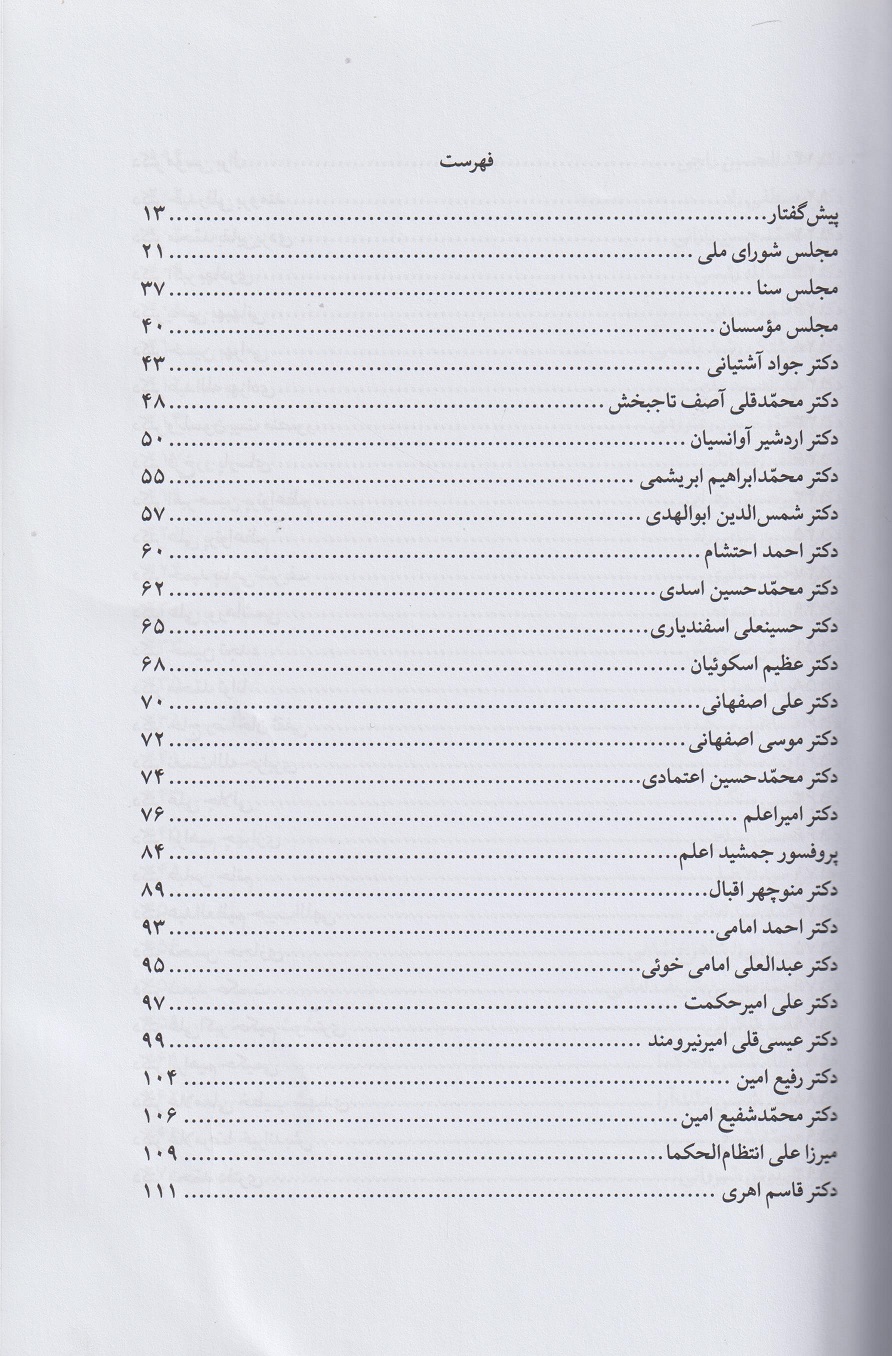 فهرست
پیش‌گفتار ۱۳
مجلس شورای ملی ۲۱
مجلس سنا ۳۷
مجلس مؤسسان ۴۰
دکتر جواد آشتیانی ۴۳
دکتر محمّدقلی آصف تاجبخش ۴۸
دکتر اردشیر آوانسیان ۵۰
دکتر محمّدابراهیم ابریشمی ۵۵
دکتر شمس‌الدین ابوالهدی ۵۷
دکتر احمد احتشام ۶۰
دکتر محمّدحسین اسدی ۶۲
دکتر حسینعلی اسفندیاری ۶۵
دکتر عظیم اسکوئیان ۶۸
دکتر علی اصفهانی ۷۰
دکتر موسی اصفهانی ۷۲
دکتر محمّدحسین اعتمادی ۷۴
دکتر امیراعلم ۷۶
پروفسور جمشید اعلم ۸۴
دکتر منوچهر اقبال ۸۹
دکتر احمد امامی ۹۳
دکتر عبدالعلی امامی خوئی ۹۵
دکتر علی امیرحکمت ۹۷
دکتر عیسی‌قلی امیرنیرومند ۹۹
دکتر رفیع امین ۱۰۴
دکتر محمّدشفیع امین ۱۰۶
میرزا علی انتظام‌الحکما ۱۰۹
دکتر قاسم اهری ۱۱۱